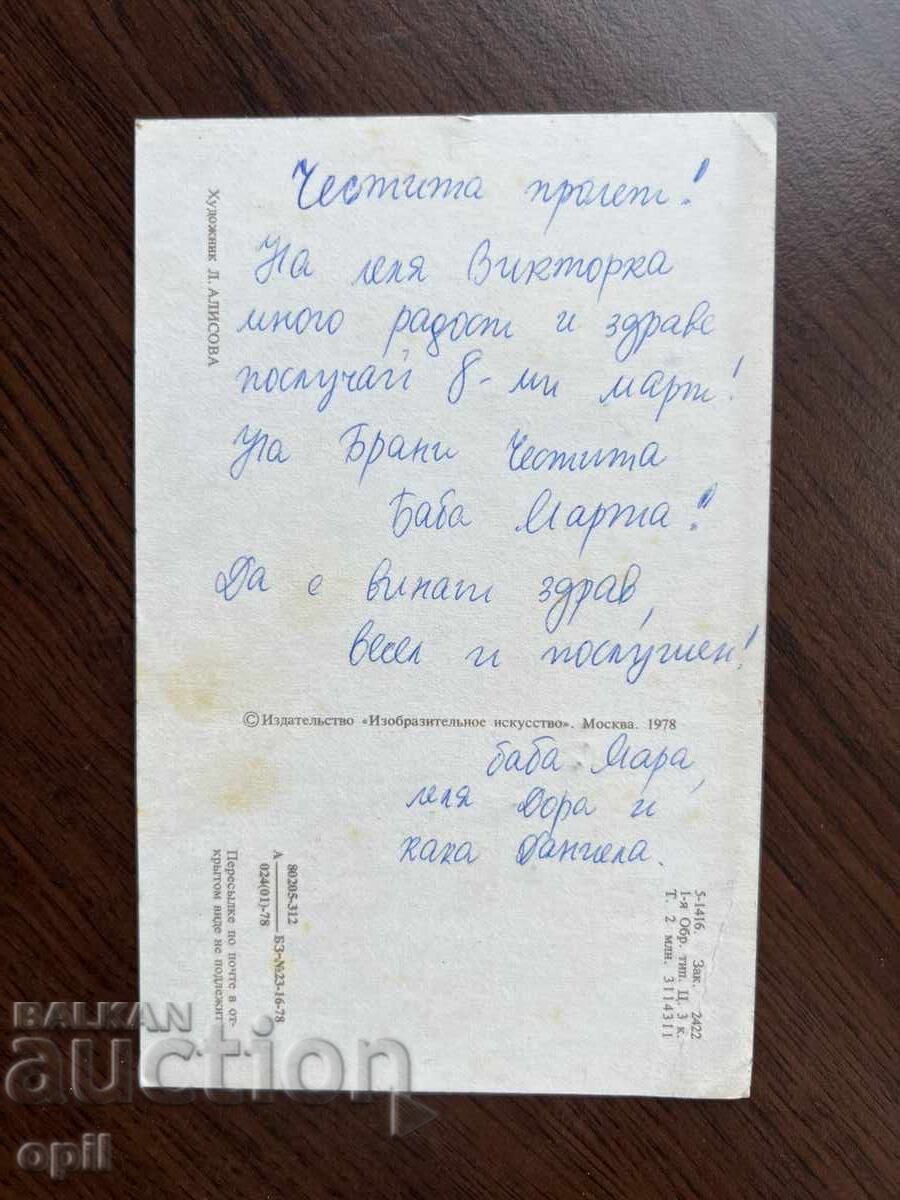 Честита пролет!
На леля Викторка
много радост и здраве
послучай 8-ми март!
На Брани Честита
Баба Марта!
Да е винаги здрав,
весел и послушен!
© Издательство «Изобразительное искусство». Москва. 1978
баба Мара,
леля Дора и
кака Данчела.
Художник Л. АЛИСОВА
Пересылке по почте в от-
крытом виде не подлежит
80205-312
А ——— БЗ-№23-16-78
024(01)-78
5-1416. Зак. 2422
1-я Обр. тип. Ц. 3 к.
Т. 2 млн. 3114311
BALKAN
auction
opil